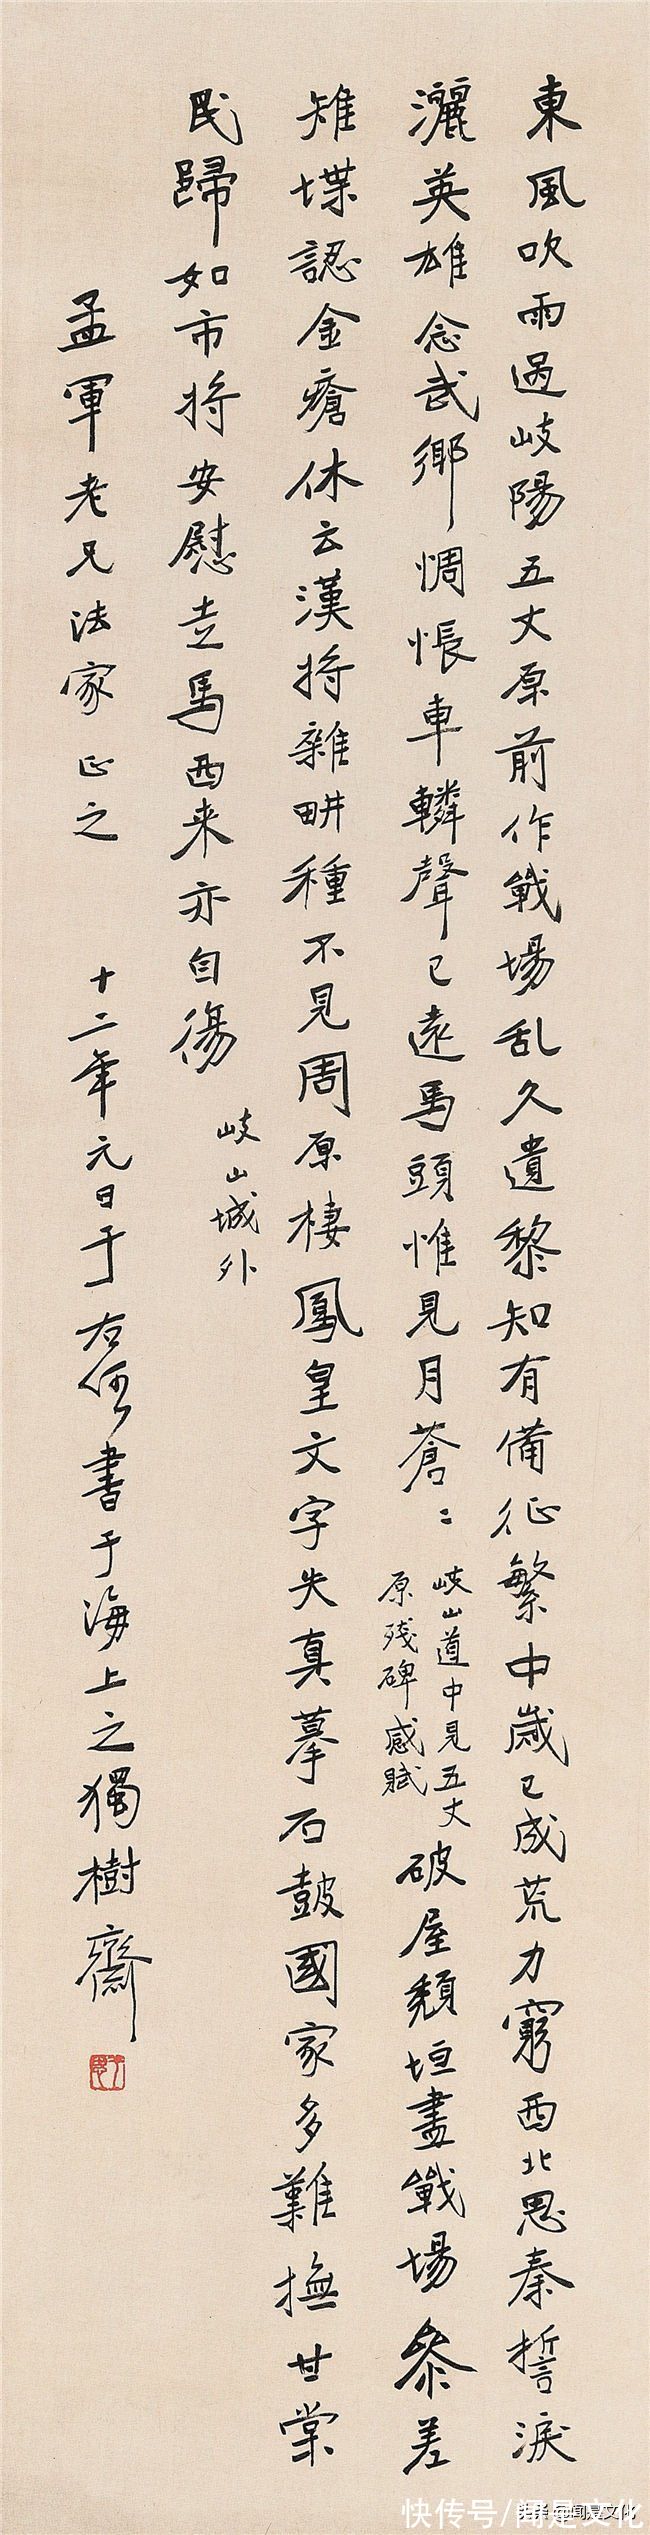 東風吹雨過岐陽五丈原前作戰場乱久遺黎知有備征繁中歲已成荒力窮西北思秦誓淚
灑英雄念武鄉惆悵車轔聲已遠馬頭惟見月蒼〻
岐山道中見五丈
原残碑感賦
破屋頹垣盡戰場參差
雉堞認金瘡休云漢将雜畊種不見周原棲鳳皇文字失真摹石鼓國家多難撫甘棠
民歸如市将安慰走馬西来亦自傷
岐山城外
孟軍老兄法家正之
十二年元日于右任書于海上之獨樹齋
快传号/闻是文化
头条 @闻是文化